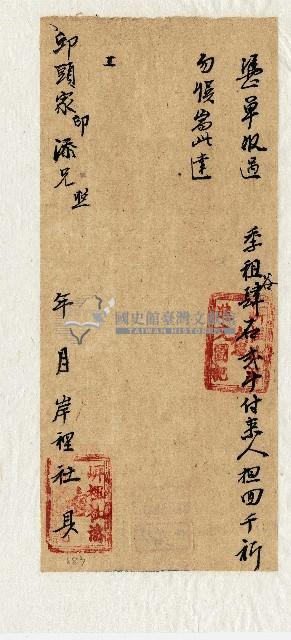 憑單收過 季祖谷肆石弍斗付來人担回千祈
勿悞耑此達
上
邱頭家印添兄照
年 月 岸裡社具
國史館臺灣文獻館
TAIWAN HISTORICA
683